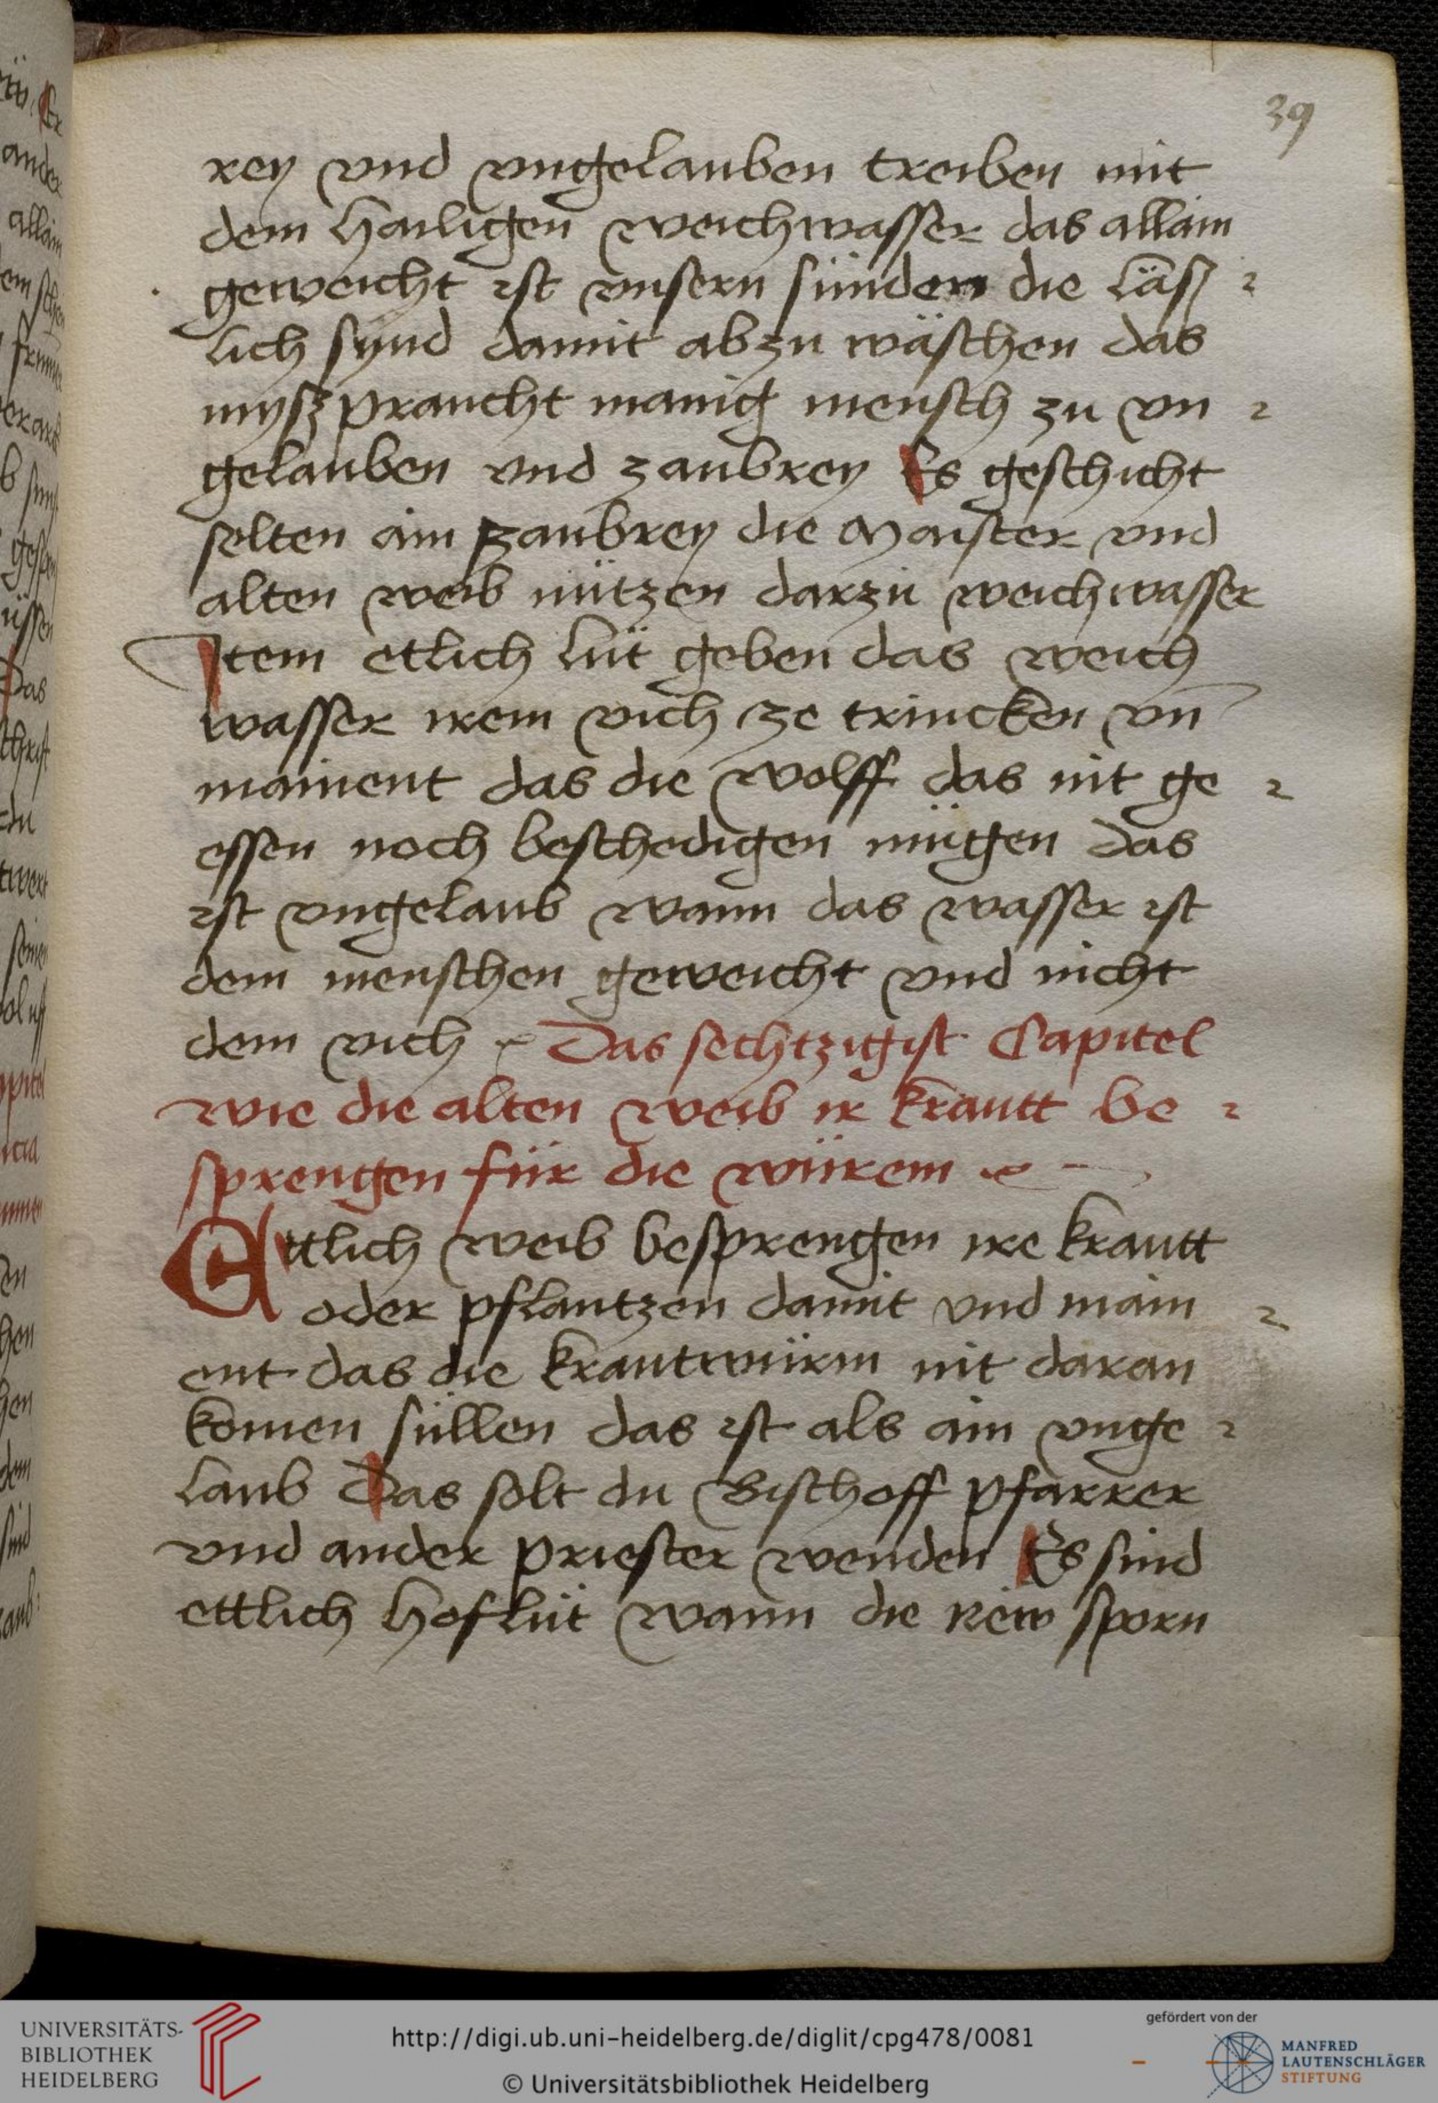 39
rey vnd vngelauben treiben mit
dem hailigen weichwasser das allain
geweicht ist vnsern sünden die läs-
lich synd damit abzu wäschen das
myszpraucht manig mensch zu vn-
gelauben vnd zaubrey Es geschicht
selten ain zaubrey die Maister vnd
alten weib nützen darzu weichwasser
Item etlich lüt geben das weich
wasser irem vich ze trincken vn̄
mainent das die wolff das nit ge-
essen noch beschedigen mügen das
ist vngelaub wann das wasser ist
dem menschen geweicht vnd nicht
dem vich Das sechtzigist Capitel
wie die alten weib ir krautt be-
sprengen für die würem
Ettlich weib besprengen ire krautt
oder pflantzen damit vnd main-
ent das die krautwürm nit daran
komen süllen das ist als ain vnge-
laub Das solt du Bischoff pfarrer
vnd ander priester wenden Es sind
ettlich hoflüt wann die new sporn
UNIVERSITÄTS-
BIBLIOTHEK
HEIDELBERG
http://digi.ub.uni-heidelberg.de/diglit/cpg478/0081
© Universitätsbibliothek Heidelberg
gefördert von der
MANFRED
LAUTENSCHLÄGER
STIFTUNG